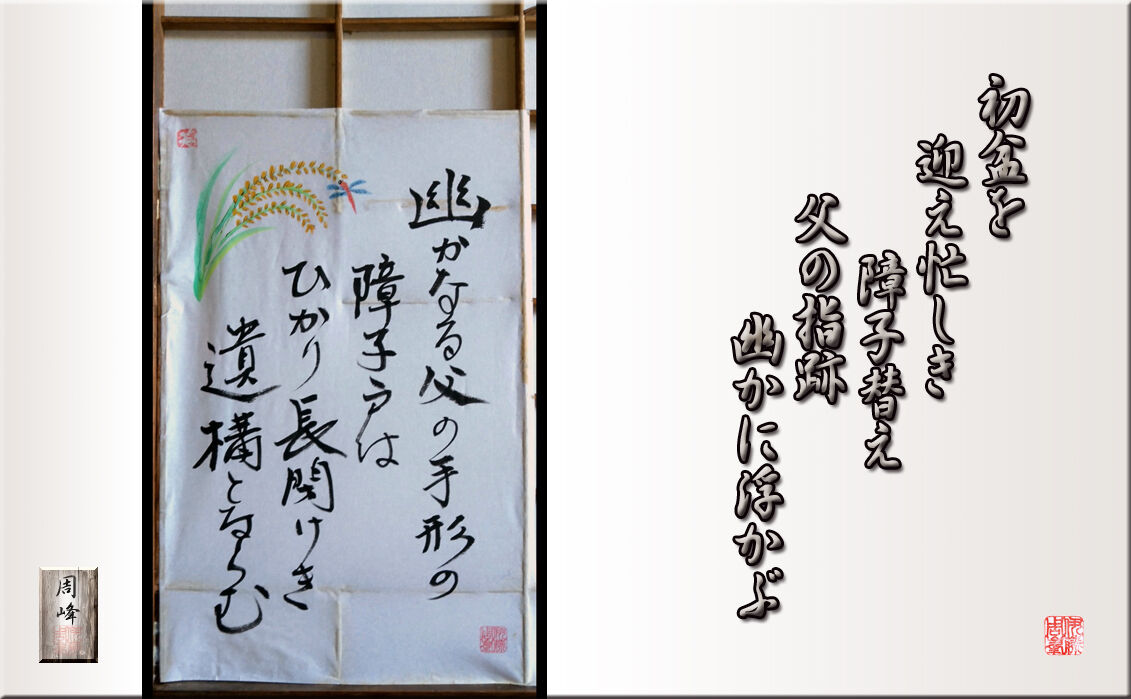 初盆を
迎え忙しき
障子替え
父の指跡
幽かに浮かぶ
幽かなる父の手形の
障子戸は
ひかり長閑けき
遺構とならむ
周峰